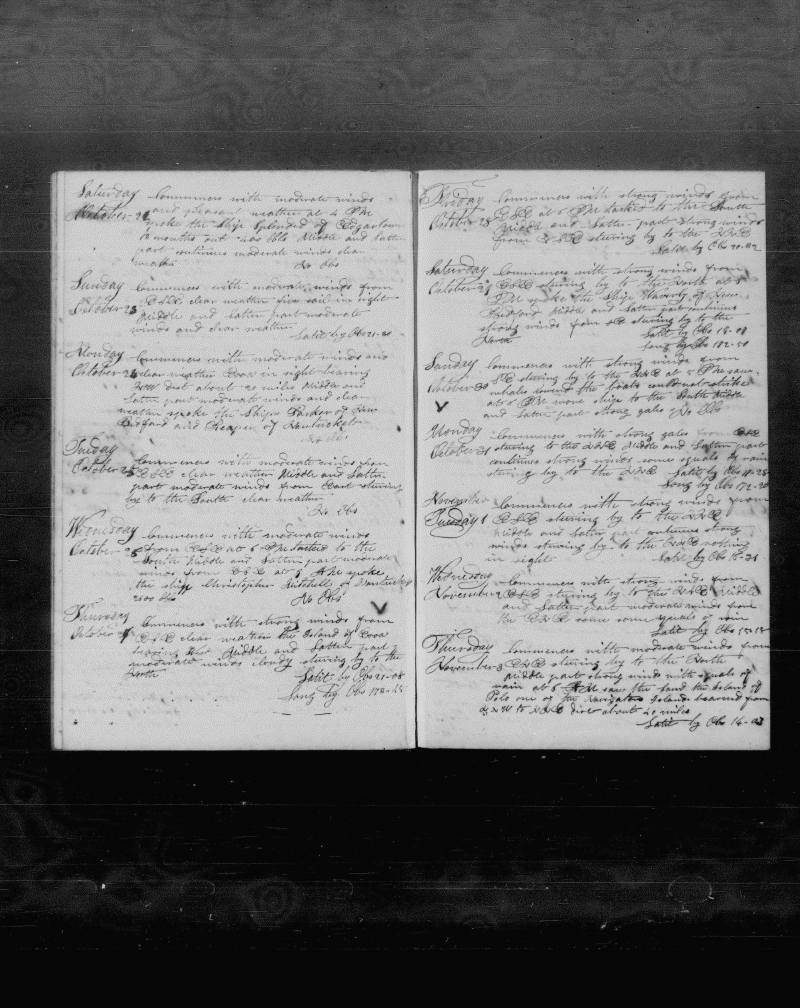 Saturday Commences with moderate winds
October 22 and pleasant weather at 4 PM
spoke the Ship Splendid of Edgartown
18 months out 400 bbls Middle and Latter
part continues moderate winds clear
weather No Obs
Sunday Commences with moderate winds from
October 23 ESE clear weather five sail in sight
Middle and Latter part moderate
winds and clear weather
Latit by Obs 21-20
Monday Commences with moderate winds and
October 24 clear weather Eooa in sight bearing
dist about 20 miles Middle and
Latter part moderate winds and clear
weather spoke the Ships Parker of New
Bedford and Reaper of Nantucket
No Obs
Tuesday Commences with moderate winds from
October 25 ESE clear weather Middle and Latter
part moderate winds from East steering
by to the South clear weather
No Obs
Wednesday Commences with moderate winds
October 26 from ESE at 6 PM tacked to the
South Middle and Latter part moderate
winds from ESE at 8 AM spoke
the ship Christopher Mitchell of Nantucket
2500 bbls No Obs
Thursday Commences with strong winds from
October 27 ESE clear weather the Island of Eooa
bearing West Middle and Latter part
moderate winds cloudy steering by to the
North Latit by Obs 21-08
Long by Obs 173-
Friday Commences with strong winds from
October 28 ESE at 6 PM tacked to the South
Middle and Latter part strong winds
from ESE steering by to the NNE
Latit by Obs 20-02
Saturday Commences with strong winds from
October 29 ESE steering by to the North at 5
PM spoke the Ship Waverly of New
Bedford Middle and Latter part continues
strong winds from steering by to the
North Latit by Obs 18-08
Long by Obs 172-50
Sunday Commences with strong winds from
October 30 ESE steering by to the NNE at 5 PM saw
whales lowered the boats could not strike
at 8 PM wore ship to the South Middle
and Latter part strong gales No Obs
Monday Commences with strong gales from ESE
October 31 steering to the NNE Middle and Latter part
continues strong winds some squals of rain
steering by to the NNE Latit by Obs 17-28
Long by Obs 172-20
November Commences with strong winds from
Tuesday 1 ESE steering by to the NNE
Middle and Latter part continues strong
winds steering by to the NNE nothing
in sight Latit by Obs 15-21
Wednesday Commences with strong winds from
November 2 ESE steering by to the NNE Middle
and Latter part moderate winds from
the ENE some squals of rain
Latit by Obs
Thursday Commences with moderate winds from
November 3 ENE steering by to the North
Middle part strong winds with squals of
rain at 8 AM saw the land the Island of
Pola one of the Navigator Islands bearing from
N W to NNE dist about 20 miles
Latit by Obs 14-03